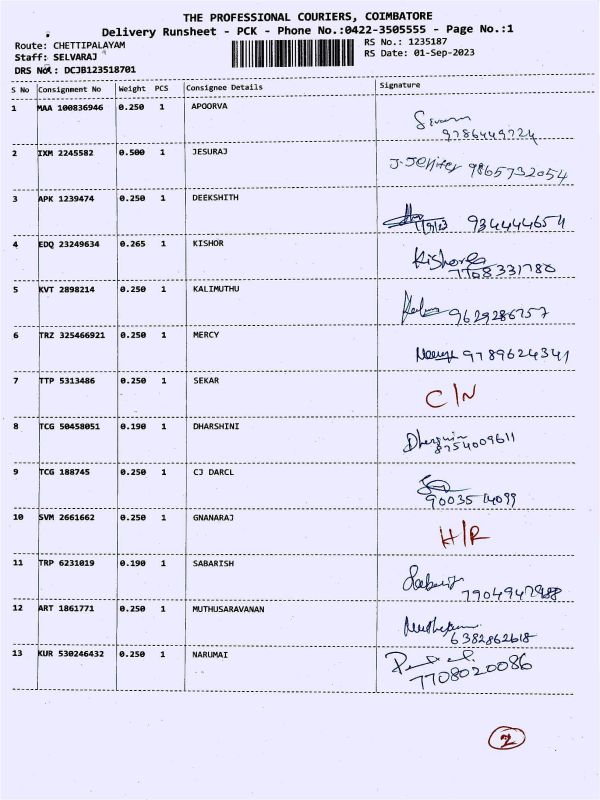 THE PROFESSIONAL COURIERS, COIMBATORE
Delivery Runsheet - PCK - Phone No.:0422-3505555 - Page No.:1
Route: CHETTIPALAYAM
Staff: SELVARAJ
DRS No.: DCJB123518701
RS No.: 1235187
RS Date: 01-Sep-2023
S No Consignment No Weight PCS Consignee Details Signature
1 MAA 100836946 0.250 1 APOORVA
9786449724
2 IXM 2245582 0.500 1 JESURAJ
J. Jenifer 9865732054
3 APK 1239474 0.250 1 DEEKSHITH
1/9/23 934444654
4 EDQ 23249634 0.265 1 KISHOR
Kishore
7708331780
5 KVT 2898214 0.250 1 KALIMUTHU
9629286757
6 TRZ 325466921 0.250 1 MERCY
9789624341
7 TTP 5313486 0.250 1 SEKAR
C/N
8 TCG 50458051 0.190 1 DHARSHINI
8754009611
9 TCG 188745 0.250 1 CJ DARCL
9003514099
10 SVM 2661662 0.250 1 GNANARAJ
H/R
11 TRP 6231019 0.190 1 SABARISH
7904947988
12 ART 1861771 0.250 1 MUTHUSARAVANAN
6382862618
13 KUR 530246432 0.250 1 NARUMAI
7708020086
2